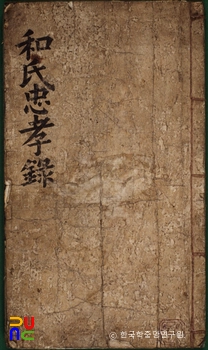 和氏忠孝錄
PU
ⓒ 한국학중앙연구원